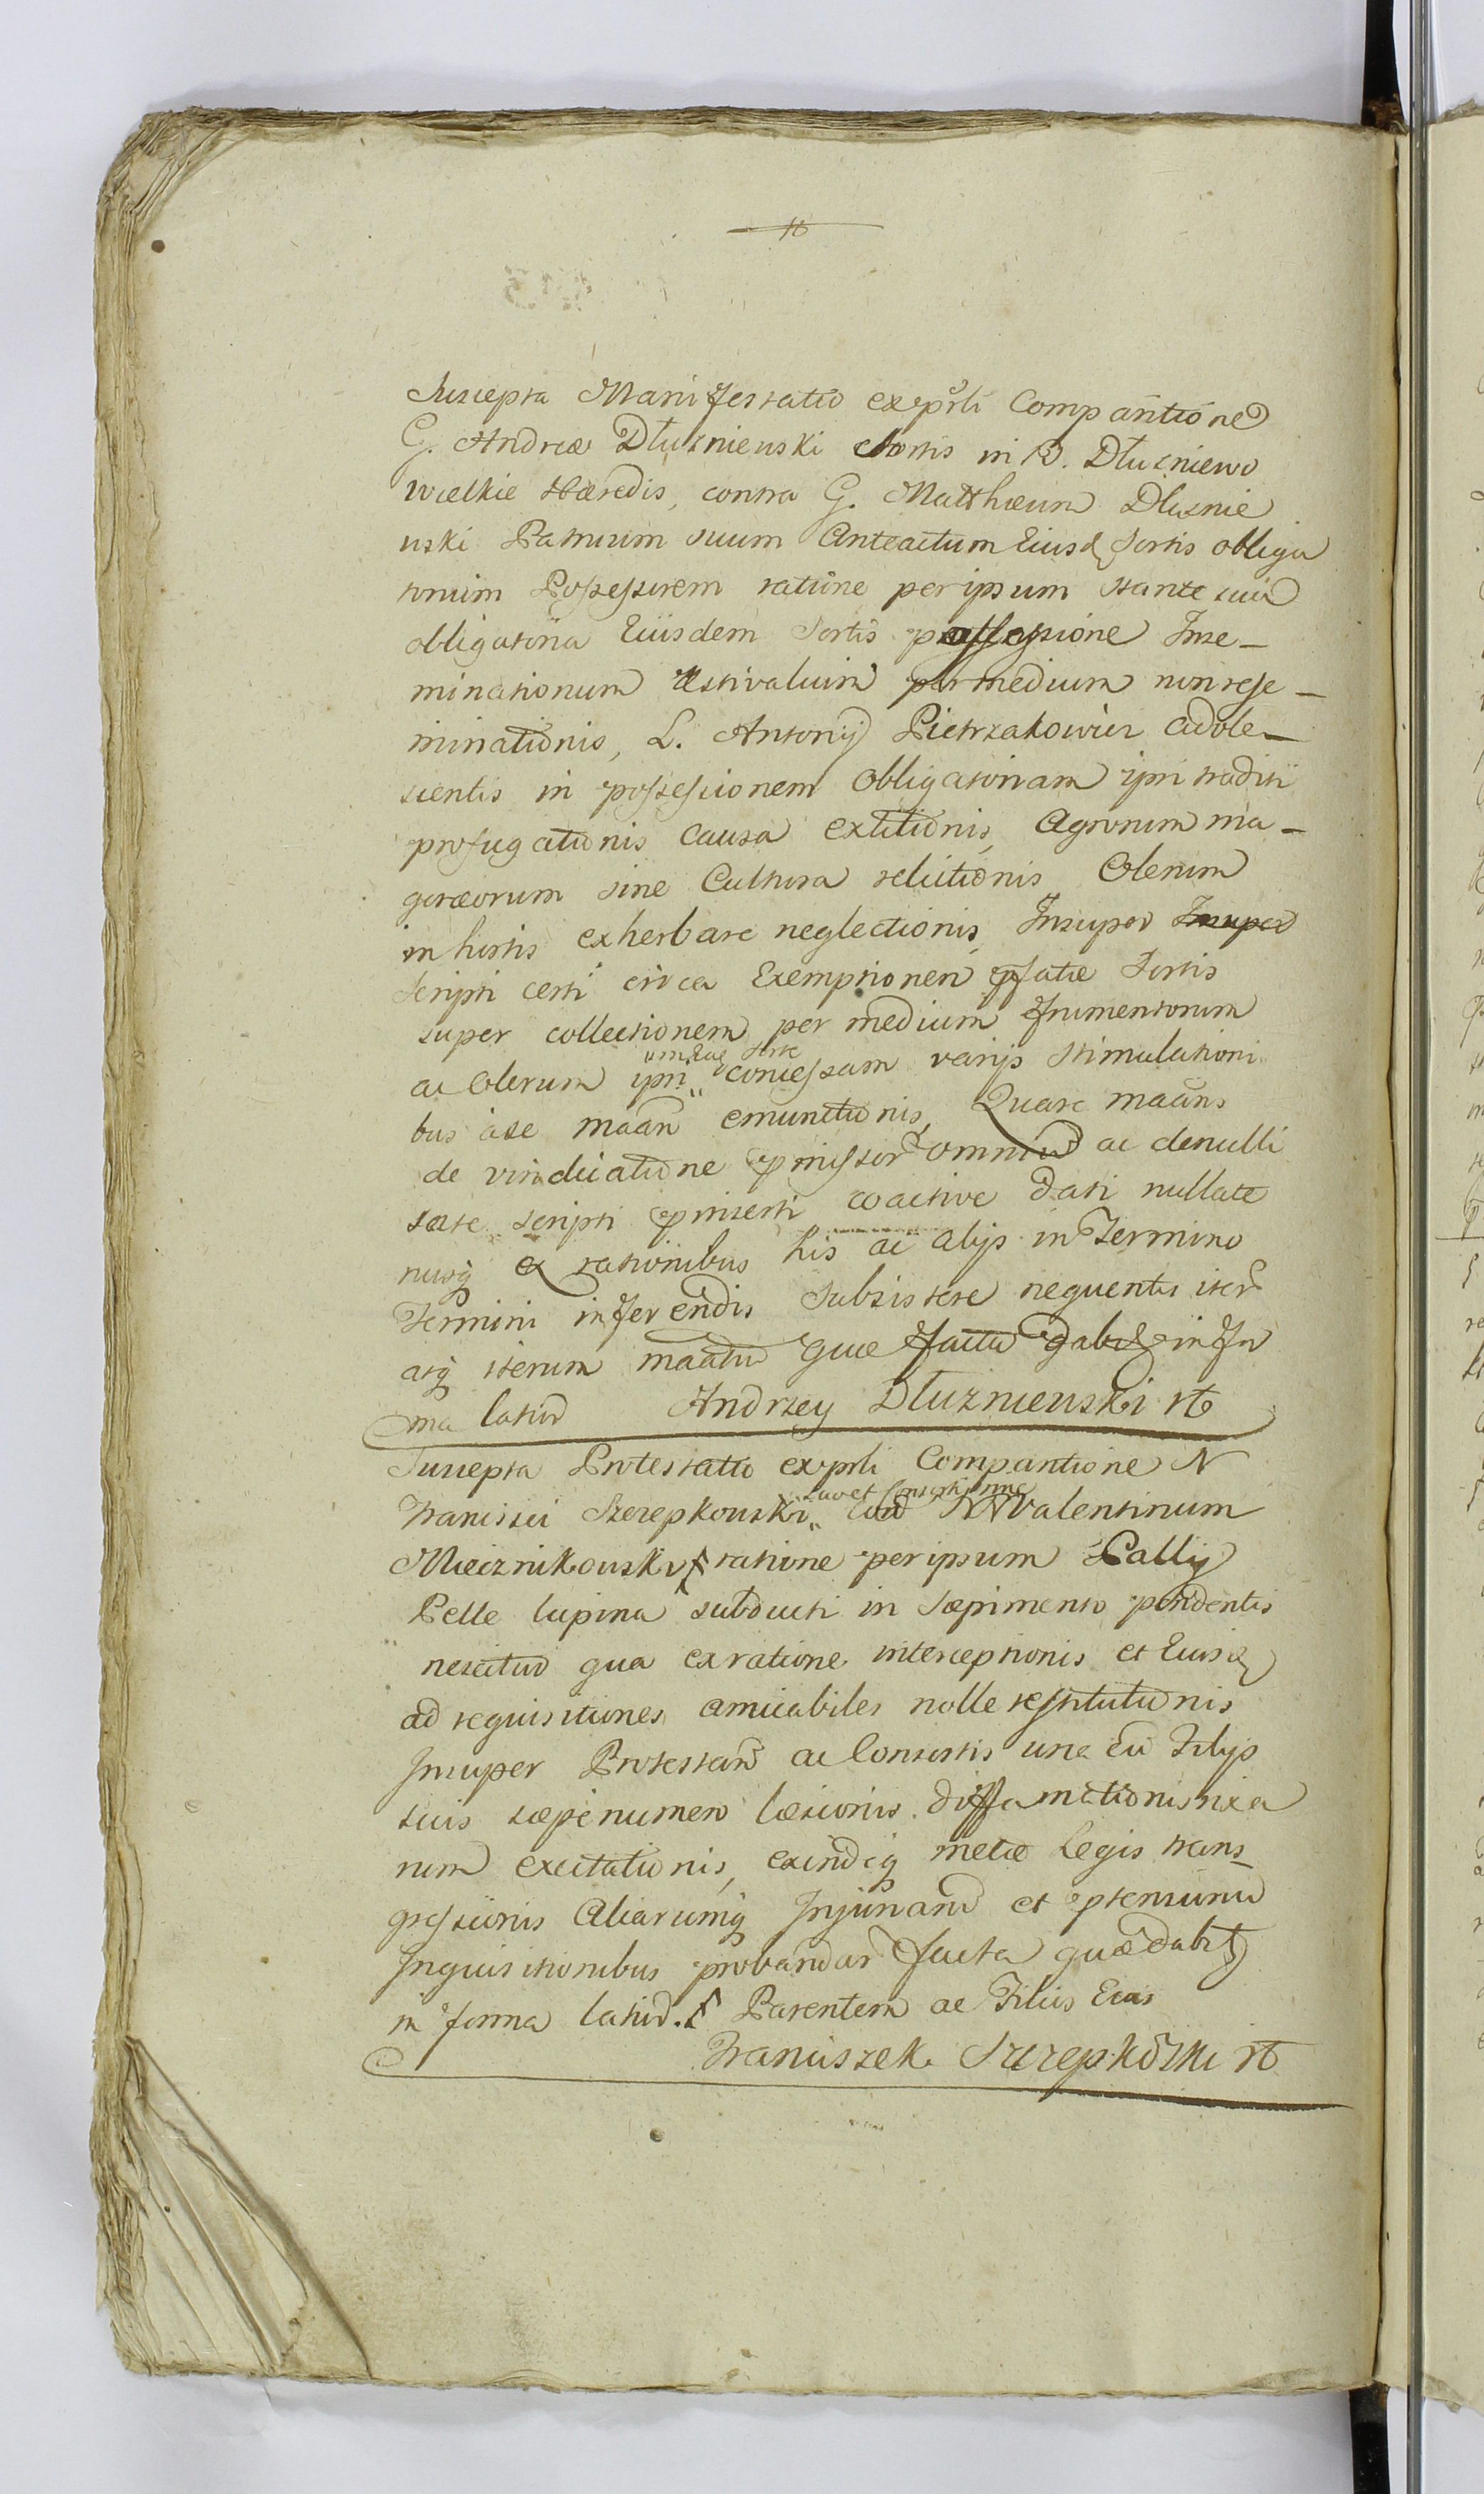 Suscepta Manifestatio ex psli Compantione
G. Andreæ Dłuzniewski Sortis in B. Dłuzniewo
Wielkie Hæredis, contra G. Matthæum Dłuznie
wski Patruum suum Anteactum Eiusd Sortis obliga
torium Possessorem ratione per ipsum stante sua
obligatoria Eiusdem Sortis possessione Inse-
minationum Æstivalium per medium non rese-
minationis, L. Antonij Pietrzakowicz adole-
scentis in possessionem obligatoriam ipsi traditi
profugationis causa extitionis, Agrorum ma-
geræorum sine Cultura relictionis Olerum
in hortis exherbare neglectionis, Insuper Insuper
Scripti certi circa Exemptionem pfatæ Sortis
super collectionem per medium frumentorum
ac Olerum ipsi concessam varijs stimulationi
bus a se maan emunctionis, Quare maans
de vindicatione pmissor omniu ac de nulli
tate scripti pinserti coactive dati nullate
nusq ex rationibus his ac alijs in Termino
Termini inferendis subsistere nequentis iter
atq iterum maatur quæ facta dabit in for
ma latior Andrzey Dłuzniewski rt
Suscepta Protestatio ex psli Compantione N
Francisci Szczepkowski suo et Consortis nne Con NValentinum
Miecznikowski ratione per ipsum Pallij
Pelle lupina subducti in sæpimento pendentis
nescitur qua ex ratione interceptionis et Eiusd
ad requisitiones amicabiles nolle restitutionis
Insuper Protestan ac Consortis una cu Filijs
suis sæpe numero læsionis diffamationis rixa
rum excitationis, exindeq metæ Legis trans-
gressionis Aliarumq Injuriaru et ptensionu
Inquisitionibus probandar facta quæ dabit
in forma latior. Parentem ac Filius Eius
Franciszek Szczepkowski rt